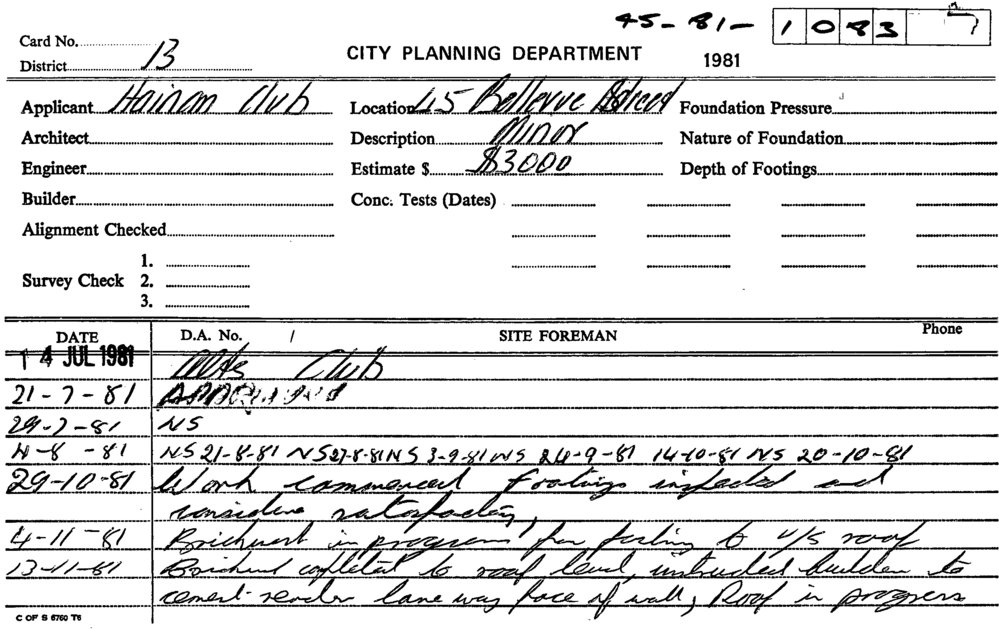 45-81- 1083 7
Card No.
District 13
CITY PLANNING DEPARTMENT 1981
Applicant Hainan Club Location 45 Bellevue Street Foundation Pressure
Architect Description Minor Nature of Foundation
Engineer Estimate $ $3000 Depth of Footings
Builder Conc. Tests (Dates)
Alignment Checked
1.
Survey Check 2.
3.
DATE D.A. No. / SITE FOREMAN Phone
14 JUL 1981 Alts Club
21-7-81
29-7-81 NS
4-8-81 NS 21-8-81 NS 27-8-81 NS 3-9-81 NS 24-9-81 14-10-81 NS 20-10-81
29-10-81 Work commenced footings inspected and
considere satisfactory,
4-11-81 Brickwork in progress to u/s roof
13-11-81 Brickwork completed to roof level, instructed builder to
cement render lane way face of wall, Roof in progress
C OF S 6760 T6